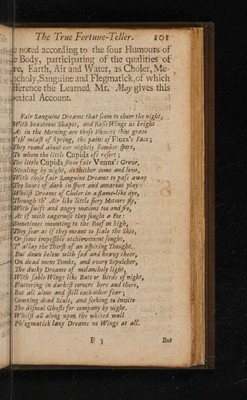 The True Fortune-Teller. 101
e noted according to the four Humours of
e Body, participating of the qualities of
re, Earth, Air and Water, as Choler, Me-
ncholy, Sanguine and Flegmatick, of which
ifference the Learned Mr. May gives this
oetical Account.
Fair Sanguine Dreams that seem to cheer the night,
With beauteous Shapes, and Wings as bright
As in the Morning are those that grace
Th' of Spring, the paths of Flora's Face;
They round about our nightly Slumber sport,
To whom the little Cupids oft resort;
The little Cupids from fair Venus's Grove,
Stealing by night, do thither come and love,
With those fair Sanguine Dreams to pass away
The hours of dark in sport and amorous play:
Whilst Dreams of Choler in a flame-like dye,
Through th' Air like little fiery Meteors fly,
With swift and angry motions to and fro,
As if with eagerness they sought a Foe:
Sometimes mounting to the Roof on high,
They soar as if they meant to scale the Skie,
Or some impossible atchievement sought,
T' allay the Thirst of an aspiring Thought.
But down below with sad and heavy cheer,
On dead mens Tombs, and every Sepulcher,
The dusky Dreams of melancholy light,
With sable Wings like Bats or Birds of night,
Fluttering in darkest corners here and there,
But all alone and still each other fear;
Courting dead Sculs, and seeking to invite
The dismal Ghosts for company by night.
Whilst all along upon the whited wall
Phlegmatick lazy Dreams no Wings at all.
F 3 But